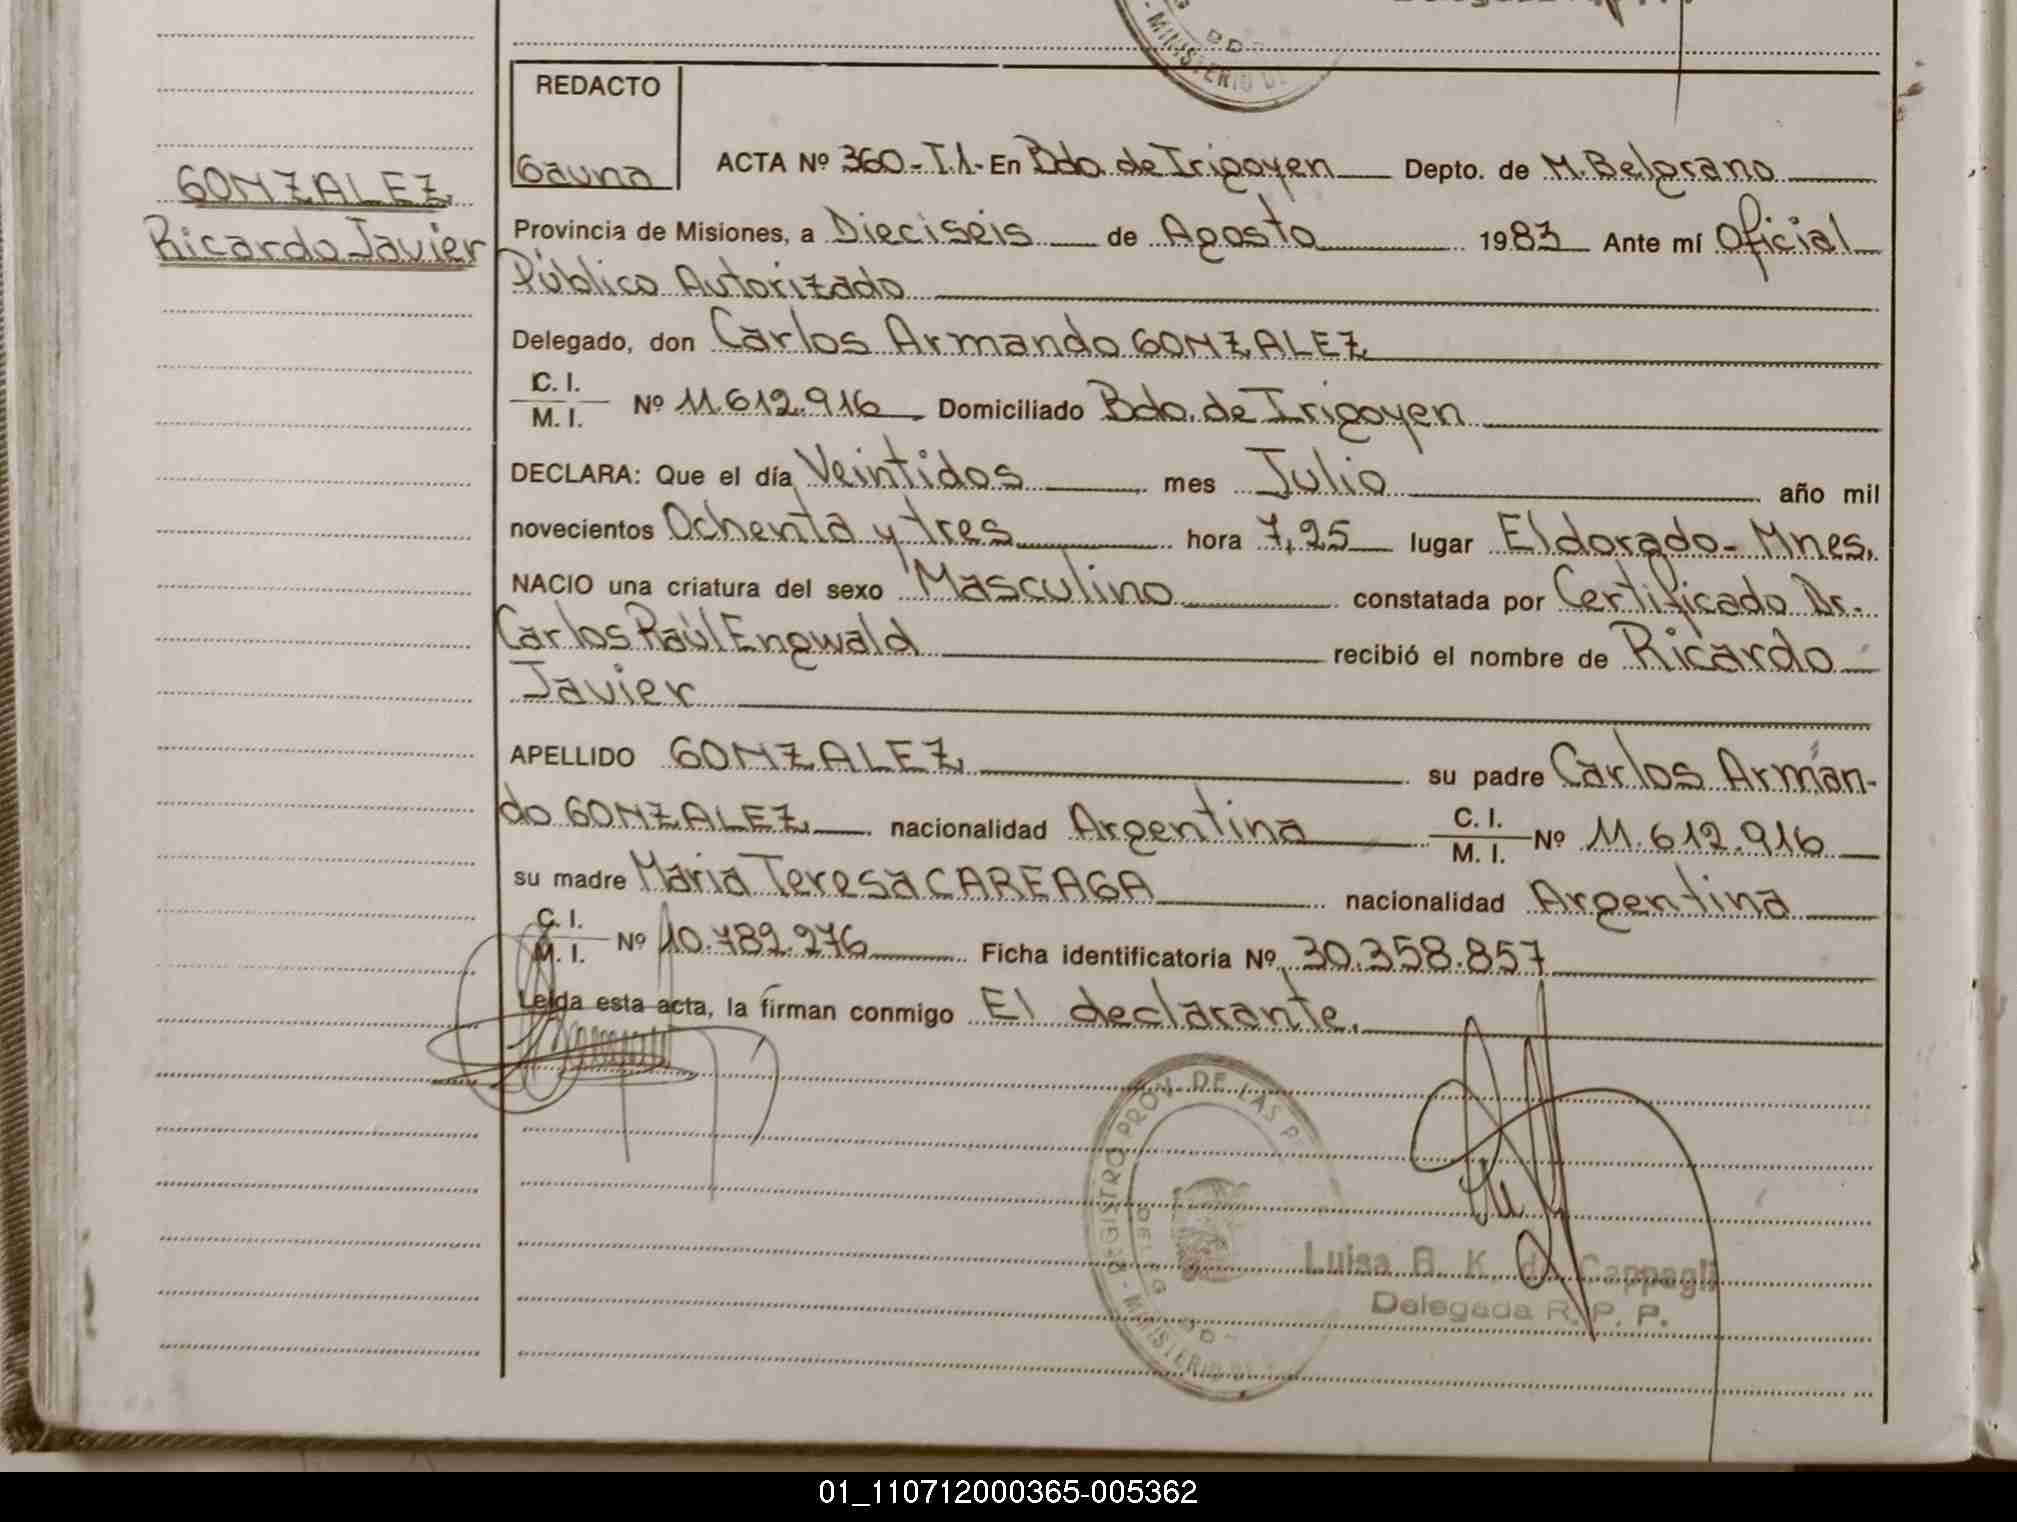 REDACTO
Gauna
GONZALEZ
Ricardo Javier
ACTA Nº 360-T.1.- En Bdo. de Irigoyen Depto. de M. Belgrano
Provincia de Misiones, a Dieciseis de Agosto 1983 Ante mí Oficial
Público Autorizado
Delegado, don Carlos Armando GONZALEZ
C. I.
M. I. Nº 11.612.916 Domiciliado Bdo. de Irigoyen
DECLARA: Que el día Veintidos mes Julio año mil
novecientos Ochenta y tres hora 7,25 lugar Eldorado - Mnes.
NACIO una criatura del sexo Masculino constatada por Certificado Dr.
Carlos Raúl Engwald recibió el nombre de Ricardo
Javier
APELLIDO GONZALEZ su padre Carlos Arman-
do GONZALEZ nacionalidad Argentina C. I.
M. I. Nº 11.612.916
su madre Maria Teresa CAREAGA nacionalidad Argentina
C. I.
M. I. Nº 10.782.276 Ficha identificatoria Nº 30.358.857
Leída esta acta, la firman conmigo El declarante.
REGISTRO PROV. DE LAS P
MINISTERIO DE
Luisa B. K. de Cappagli
Delegada R. P. P.
01_110712000365-005362